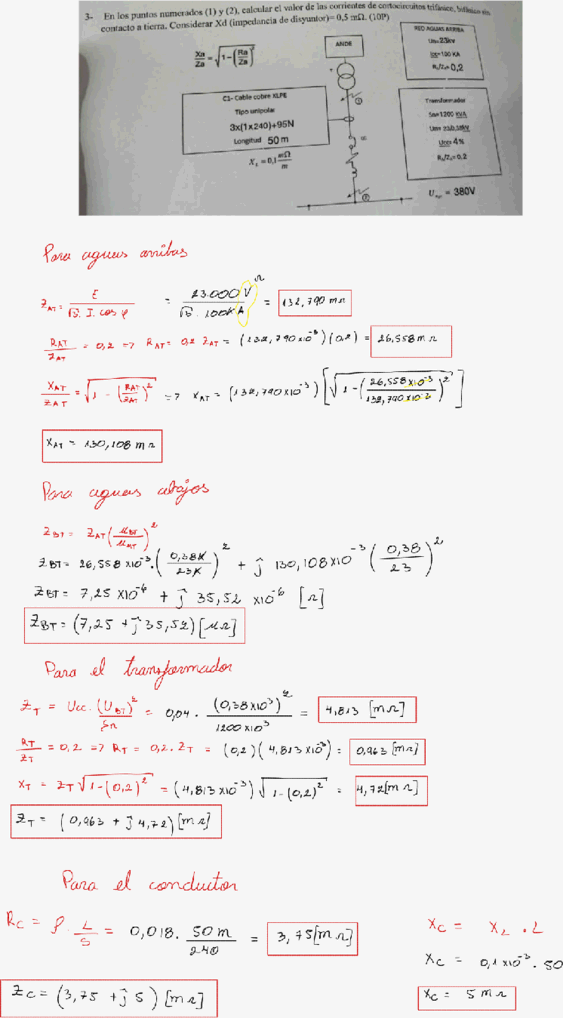 3- En los puntos numerados (1) y (2), calcular el valor de las corrientes de cortocircuitos trifásico, bifásico sin
contacto a tierra. Considerar Xd (impedancia de disyuntor)= 0,5 mΩ. (10P)
Xa/Za = √(1-(Ra/Za)²)
ANDE
RED AGUAS ARRIBA
Un=23kv
Icc=100 KA
Ra/Za= 0,2
C1- Cable cobre XLPE
Tipo unipolar
3x(1x240)+95N
Longitud 50 m
X_L = 0,1 mΩ/m
Transformador
Sn=1200 KVA
Ucc= 4%
Rt/Zt= 0,2
= 380V
Para aguas arribas
Z_AT = E/(√3. I. cos φ) = 23.000 V/(√3 . 100k A) = 132,790 mΩ
R_AT/Z_AT = 0,2 => R_AT = 0,2 Z_AT = (132,790 x10⁻³)(0,2) = 26,558 mΩ
X_AT/Z_AT = √(1 - (R_AT/Z_AT)²) => X_AT = (132,790 x10⁻³) [√(1 - (26,558 x10⁻³/132,790 x10⁻³)²)]
X_AT = 130,108 mΩ
Para aguas abajos
Z_BT = Z_AT (U_BT/U_AT)²
Z_BT = 26,558 x10⁻³ . (0,38k/23k)² + j 130,108 x10⁻³ (0,38/23)²
Z_BT = 7,25 x10⁻⁶ + j 35,52 x10⁻⁶ [Ω]
Z_BT = (7,25 + j 35,52) [μΩ]
Para el transformador
Z_T = Ucc. (U_BT)²/Sn = 0,04 . (0,38 x10³)²/1200 x10³ = 4,813 [mΩ]
R_T/Z_T = 0,2 => R_T = 0,2 . Z_T = (0,2)(4,813 x10⁻³) = 0,963 [mΩ]
X_T = Z_T √(1-(0,2)²) = (4,813 x10⁻³) √(1-(0,2)²) = 4,72 [mΩ]
Z_T = (0,963 + j 4,72) [mΩ]
Para el conductor
R_C = ρ . L/S = 0,018 . 50 m/240 = 3,75 [mΩ]
X_C = X_L . L
X_C = 0,1 x10⁻³ . 50
X_C = 5 mΩ
Z_C = (3,75 + j 5) [mΩ]